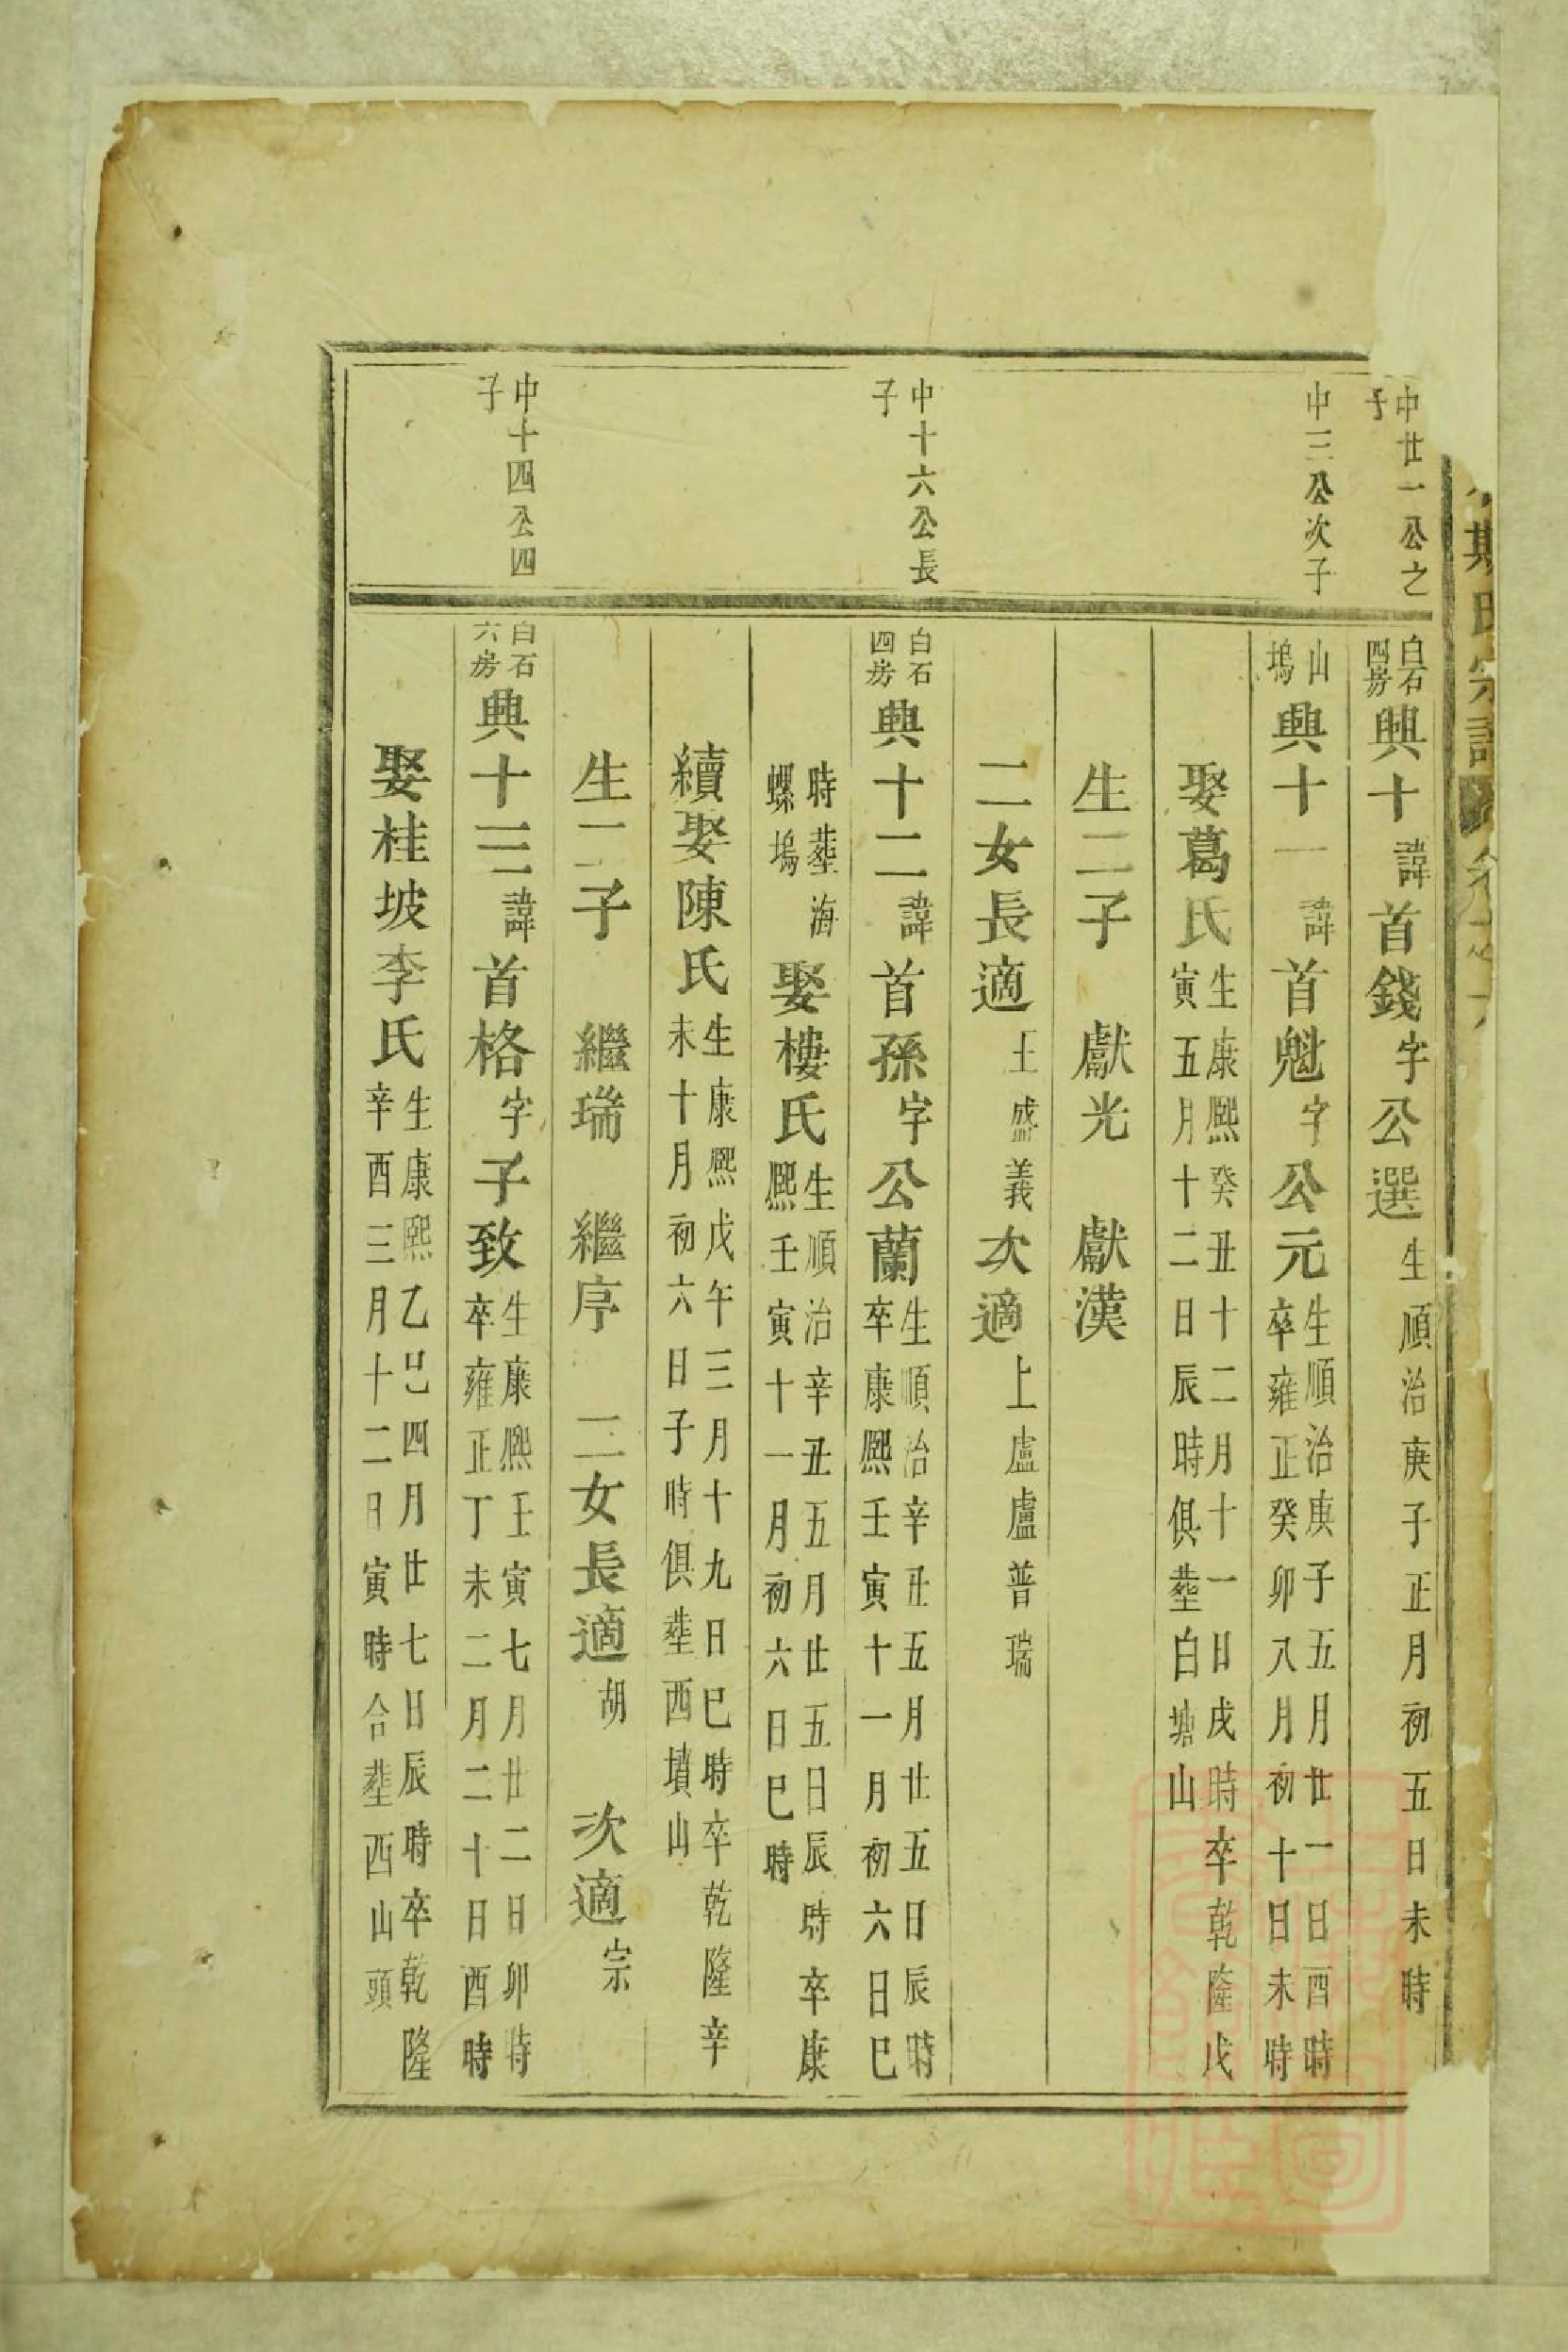 斯氏宗譜
中廿一公之子
白石四房興十諱首錢字公選生順治庚子正月初五日未時
中三公次子
山塢興十一諱首魁字公元生順治庚子五月廿一日酉時卒雍正癸卯八月初十日未時
娶葛氏生康熙癸丑十二月十一日戌時卒乾隆戊寅五月十二日辰時俱塟白塘山
生二子　獻光　獻漢
二女長適王盛義次適上盧盧普瑞
中十六公長子
白石四房興十二諱首孫字公蘭生順治辛丑五月廿五日辰時卒康熙壬寅十一月初六日巳
時塟海螺塢娶樓氏生順治辛丑五月廿五日辰時卒康熙壬寅十一月初六日巳時
續娶陳氏生康熙戊午三月十九日巳時卒乾隆辛未十月初六日子時俱塟西墳山
生二子　繼瑞　繼序　二女長適胡　次適宗
中十四公四子
白石六房興十三諱首格字子致生康熙壬寅七月廿二日卯時卒雍正丁未二月二十日酉時
娶桂坡李氏生康熙乙巳四月廿七日辰時卒乾隆辛酉三月十二日寅時合塟西山頭